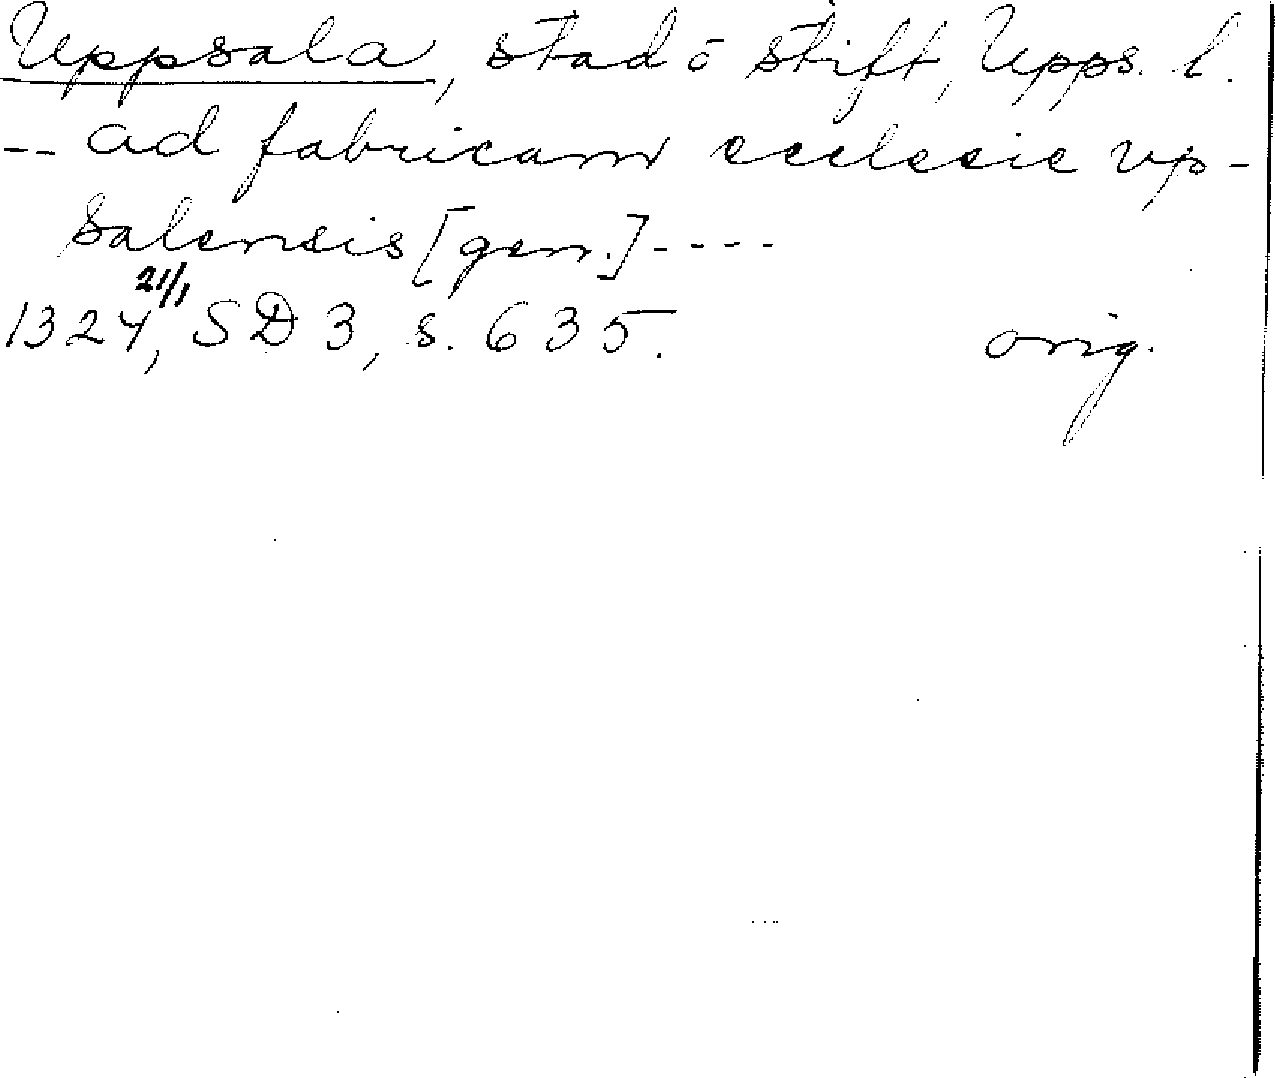 Uppsala, stad o stift, Upps. l.
-- ad fabricam ecclesie vp-
salensis [gen.] ----
1324 21/1, SD 3, s. 635. orig.